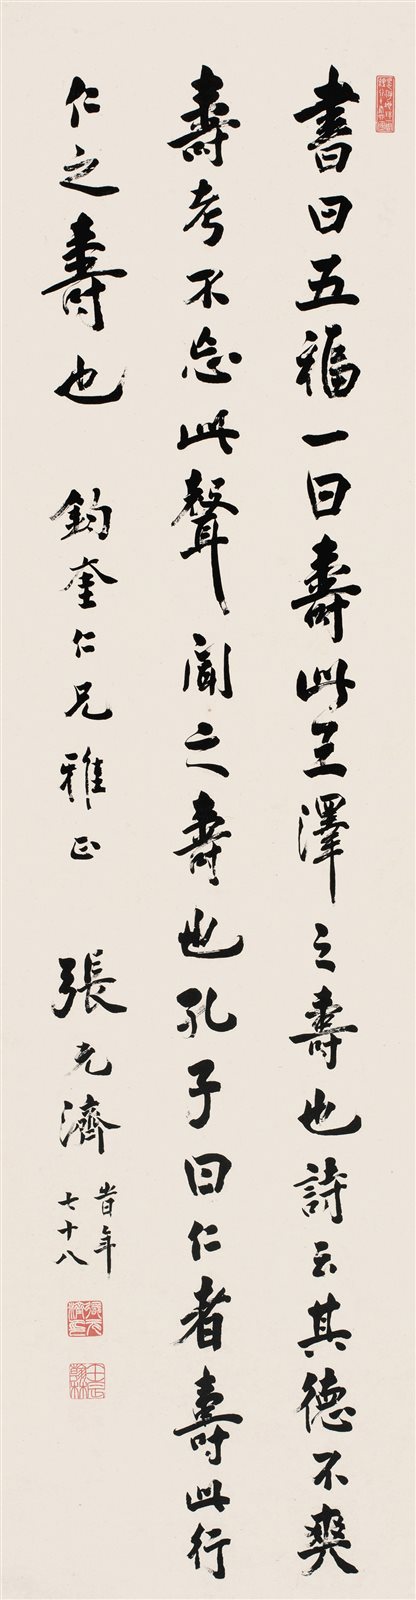 書曰五福一曰壽此王澤之壽也詩云其德不爽
壽考不忘此聲聞之壽也孔子曰仁者壽此行
仁之壽也 鈞奎仁兄雅正 張元濟
時年
七十八
張元濟印
壬辰翰林